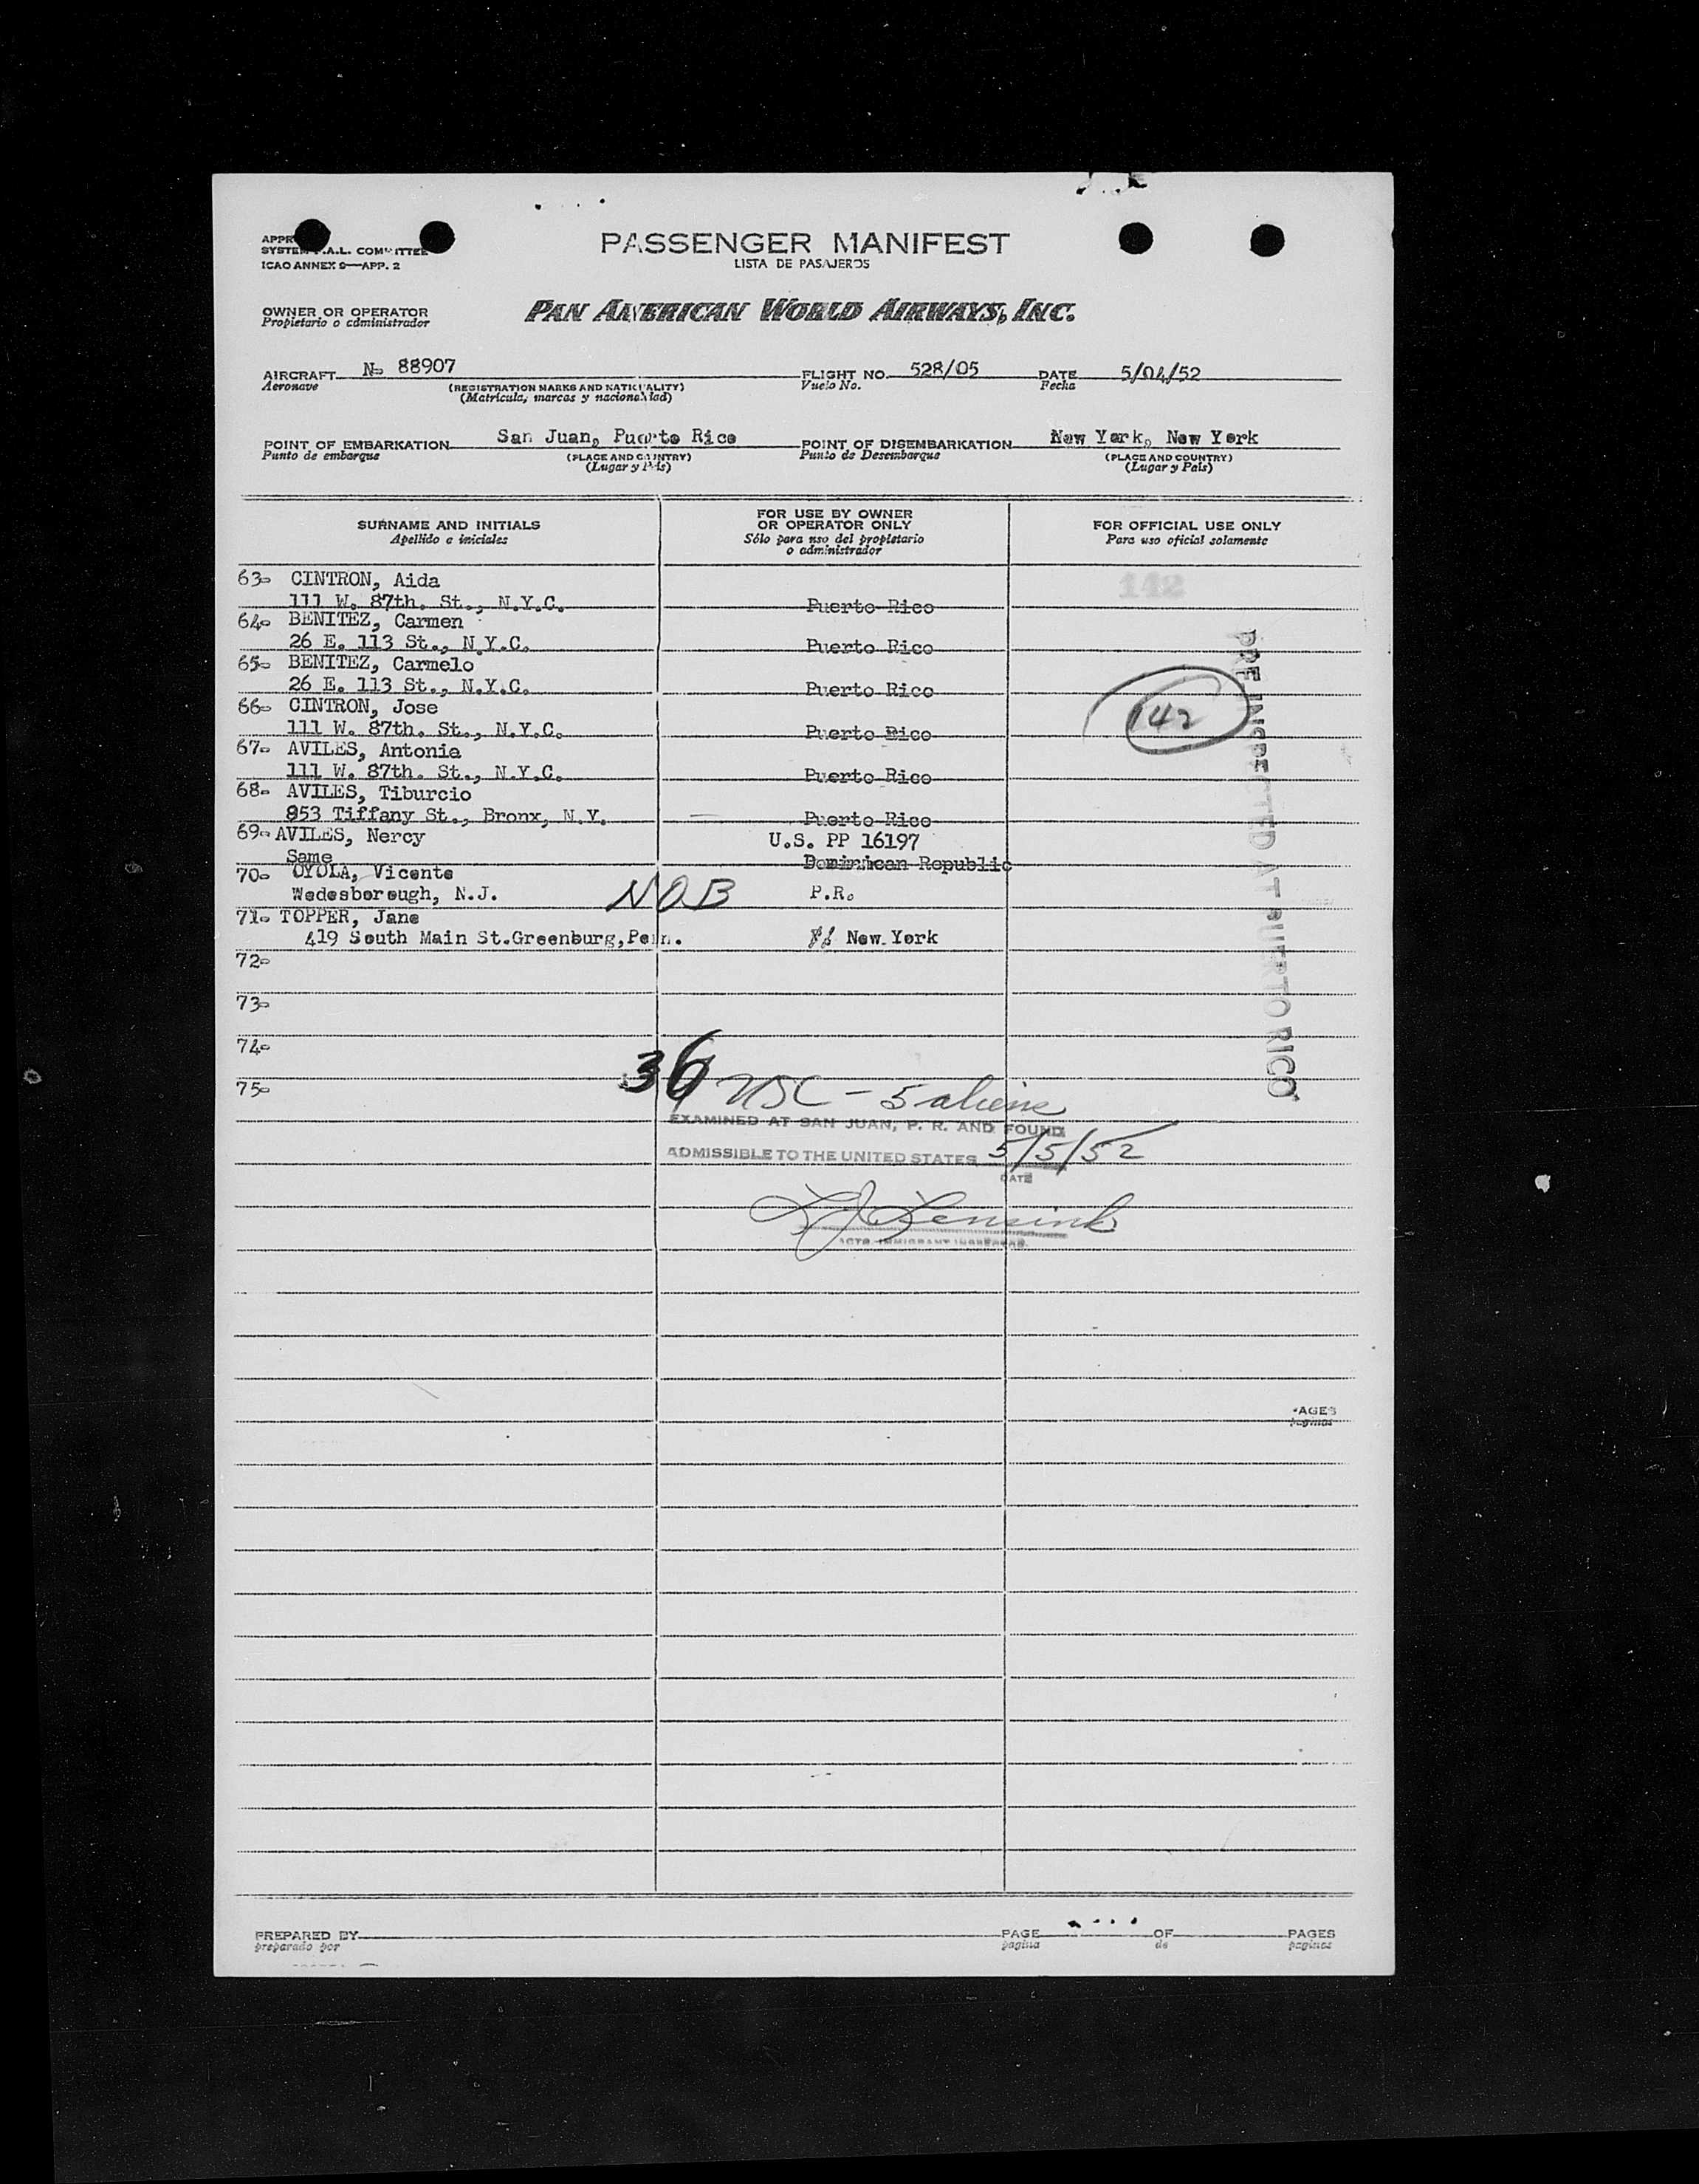 PASSENGER MANIFEST
LISTA DE PASAJEROS
ICAO ANNEX 9—APP. 2
OWNER OR OPERATOR
Propietario o administrador
PAN AMERICAN WORLD AIRWAYS, INC.
AIRCRAFT N- 88907 FLIGHT NO. 528/05 DATE 5/04/52
Aeronave (REGISTRATION MARKS AND NATIONALITY) Vuelo No. Fecha
(Matricula, marcas y nacionalidad)
POINT OF EMBARKATION San Juan, Puerto Rico POINT OF DISEMBARKATION New York, New York
Punto de embarque (PLACE AND COUNTRY) Punto de Desembarque (PLACE AND COUNTRY)
(Lugar y País) (Lugar y País)
SURNAME AND INITIALS FOR USE BY OWNER OR OPERATOR ONLY FOR OFFICIAL USE ONLY
Apellido e iniciales Sólo para uso del propietario o administrador Para uso oficial solamente
142
63- CINTRON, Aida
111 W. 87th. St., N.Y.C. Puerto Rico
64- BENITEZ, Carmen
26 E. 113 St., N.Y.C. Puerto Rico
65- BENITEZ, Carmelo
26 E. 113 St., N.Y.C. Puerto Rico
66- CINTRON, Jose 142
111 W. 87th. St., N.Y.C. Puerto Rico
67- AVILES, Antonia
111 W. 87th. St., N.Y.C. Puerto Rico
68- AVILES, Tiburcio
853 Tiffany St., Bronx, N.Y. Puerto Rico
69- AVILES, Nercy U.S. PP 16197
Same Dominican Republic
70- OYOLA, Vicente
Wedesborough, N.J. NOB P.R.
71- TOPPER, Jane
419 South Main St.Greenburg,Penn. New York
72-
73-
74-
75-
PRE-INSPECTED AT PUERTO RICO
36 USC - 5 aliens
EXAMINED AT SAN JUAN, P. R. AND FOUND
ADMISSIBLE TO THE UNITED STATES 5/5/52
DATE
PREPARED BY PAGE OF PAGES
preparado por pagina de paginas